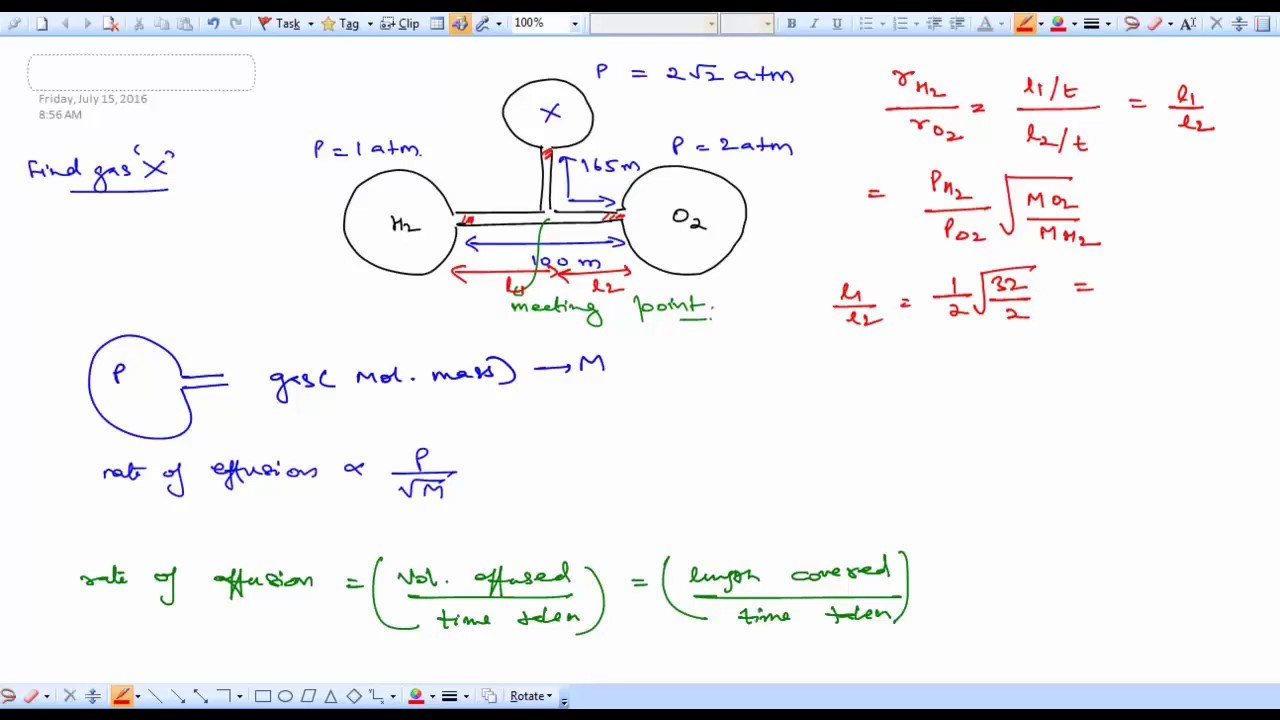 Task Tag Clip 100% B I U
Friday, July 15, 2016
8:56 AM
Find gas 'X'
P = 2√2 atm
X
P = 1 atm.
165 m
P = 2 atm
H2
O2
100 m
l1 l2
meeting point.
rH2/rO2 = (l1/t)/(l2/t) = l1/l2
= PH2/PO2 √(MO2/MH2)
l1/l2 = 1/2 √(32/2) =
P gas( Mol. mass) → M
rate of effusion ∝ P/√M
rate of effusion = (Vol. effused/time tden) = (length covered/time tden)
Rotate